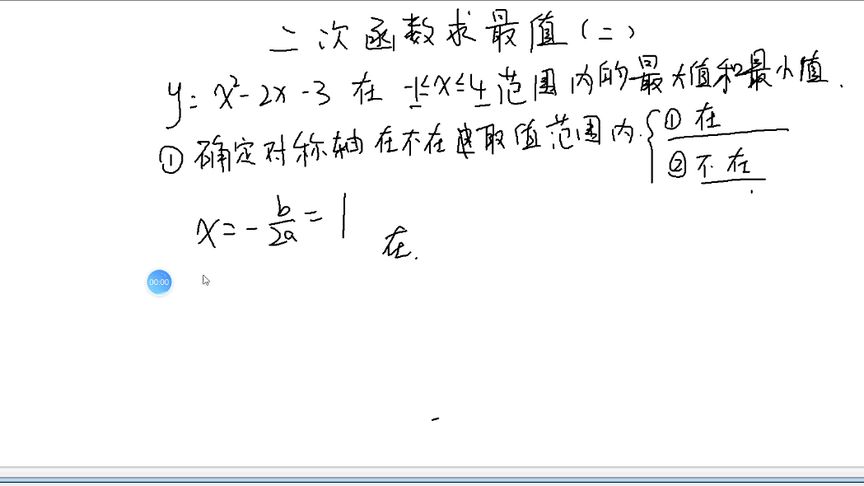 二次函数求最值（二）
y = x² - 2x - 3 在 -1≤x≤4 范围内的最大值和最小值.
① 确定对称轴在不在取值范围内. { ① 在
② 不在.
x = - b/2a = 1 在.
00:00